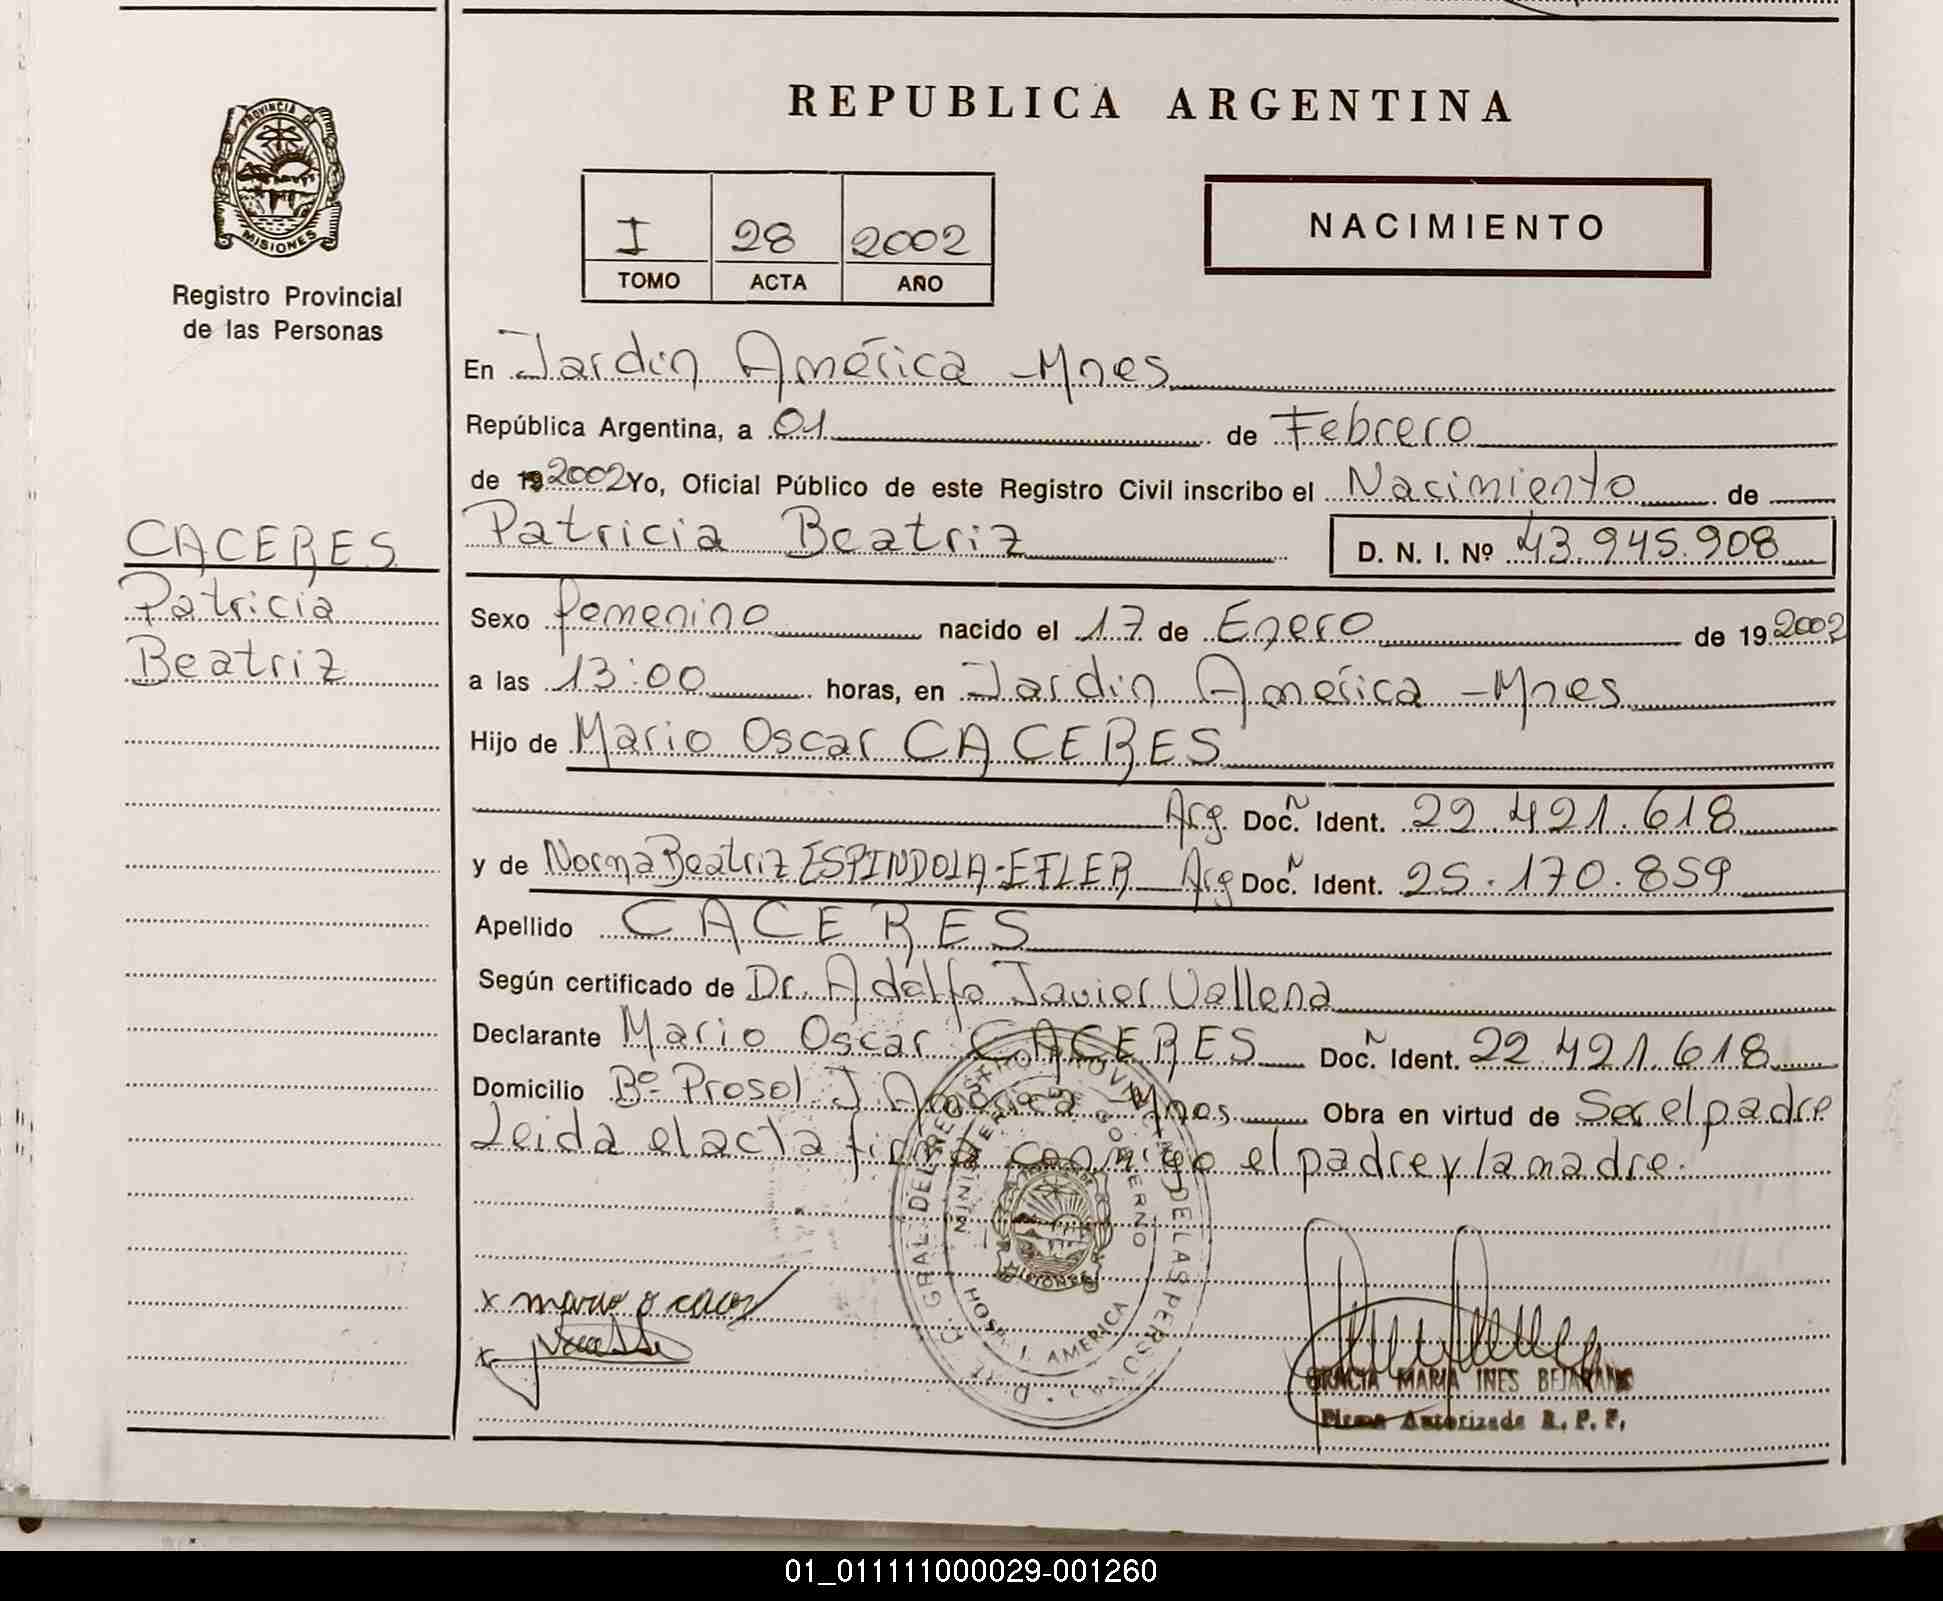 REPUBLICA ARGENTINA
PROVINCIA DE
MISIONES
Registro Provincial
de las Personas
I 28 2002
TOMO ACTA AÑO
NACIMIENTO
En Jardin América - Mnes
República Argentina, a 01 de Febrero
de 19 2002 Yo, Oficial Público de este Registro Civil inscribo el Nacimiento de
Patricia Beatriz D. N. I. Nº 43.945.908
CACERES
Patricia
Beatriz
Sexo femenino nacido el 17 de Enero de 19 2002
a las 13:00 horas, en Jardin América - Mnes
Hijo de Mario Oscar CACERES
Arg. Doc. N Ident. 22.421.618
y de Norma Beatriz ESPINDOLA-EFLER Arg Doc. N Ident. 25.170.859
Apellido CACERES
Según certificado de Dr. Adolfo Javier Vallena
Declarante Mario Oscar CACERES Doc. N Ident. 22.421.618
Domicilio Bº Prosol J. América - Mnes Obra en virtud de Ser el padre
Leida el acta firma conmigo el padre y la madre.
DEL REGISTRO PROVINCIAL DE LAS PERSONAS
MINISTERIO DE GOBIERNO
MISIONES
HOSP. J. AMERICA
x mario o cacer
x
GRACIA MARIA INES BEJARANO
Firma Autorizada R. P. P.
01_011111000029-001260